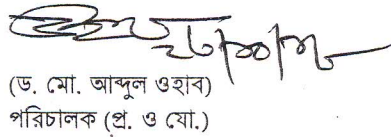 (ড. মো. আব্দুল ওহাব)
পরিচালক (প্র. ও যো.)